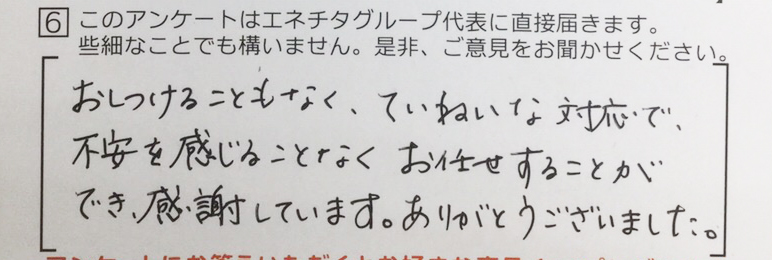 6 このアンケートはエネチタグループ代表に直接届きます。
些細なことでも構いません。是非、ご意見をお聞かせください。
おしつけることもなく、ていねいな対応で、
不安を感じることなく お任せすることが
でき、感謝しています。ありがとうございました。